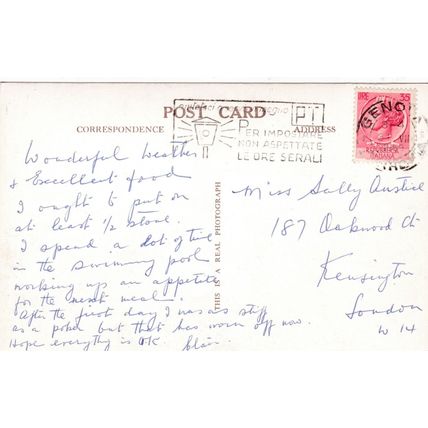 POST CARD
CORRESPONDENCE
ADDRESS
PTT
PER IMPOSTARE
NON ASPETTATE
LE ORE SERALI
LIRE 35
GENO
THIS IS A REAL PHOTOGRAPH
Wonderful weather
& Excellent food
I ought to put on
at least ½ stone.
I spend a lot of time
in the swimming pool
working up an appetite
for the next meal.
After the first day I was stiff
as a poker but that has worn off now.
Hope everything is OK. Clair.
Miss Sally
187 Oakwood Ct
Kensington
London
W 14